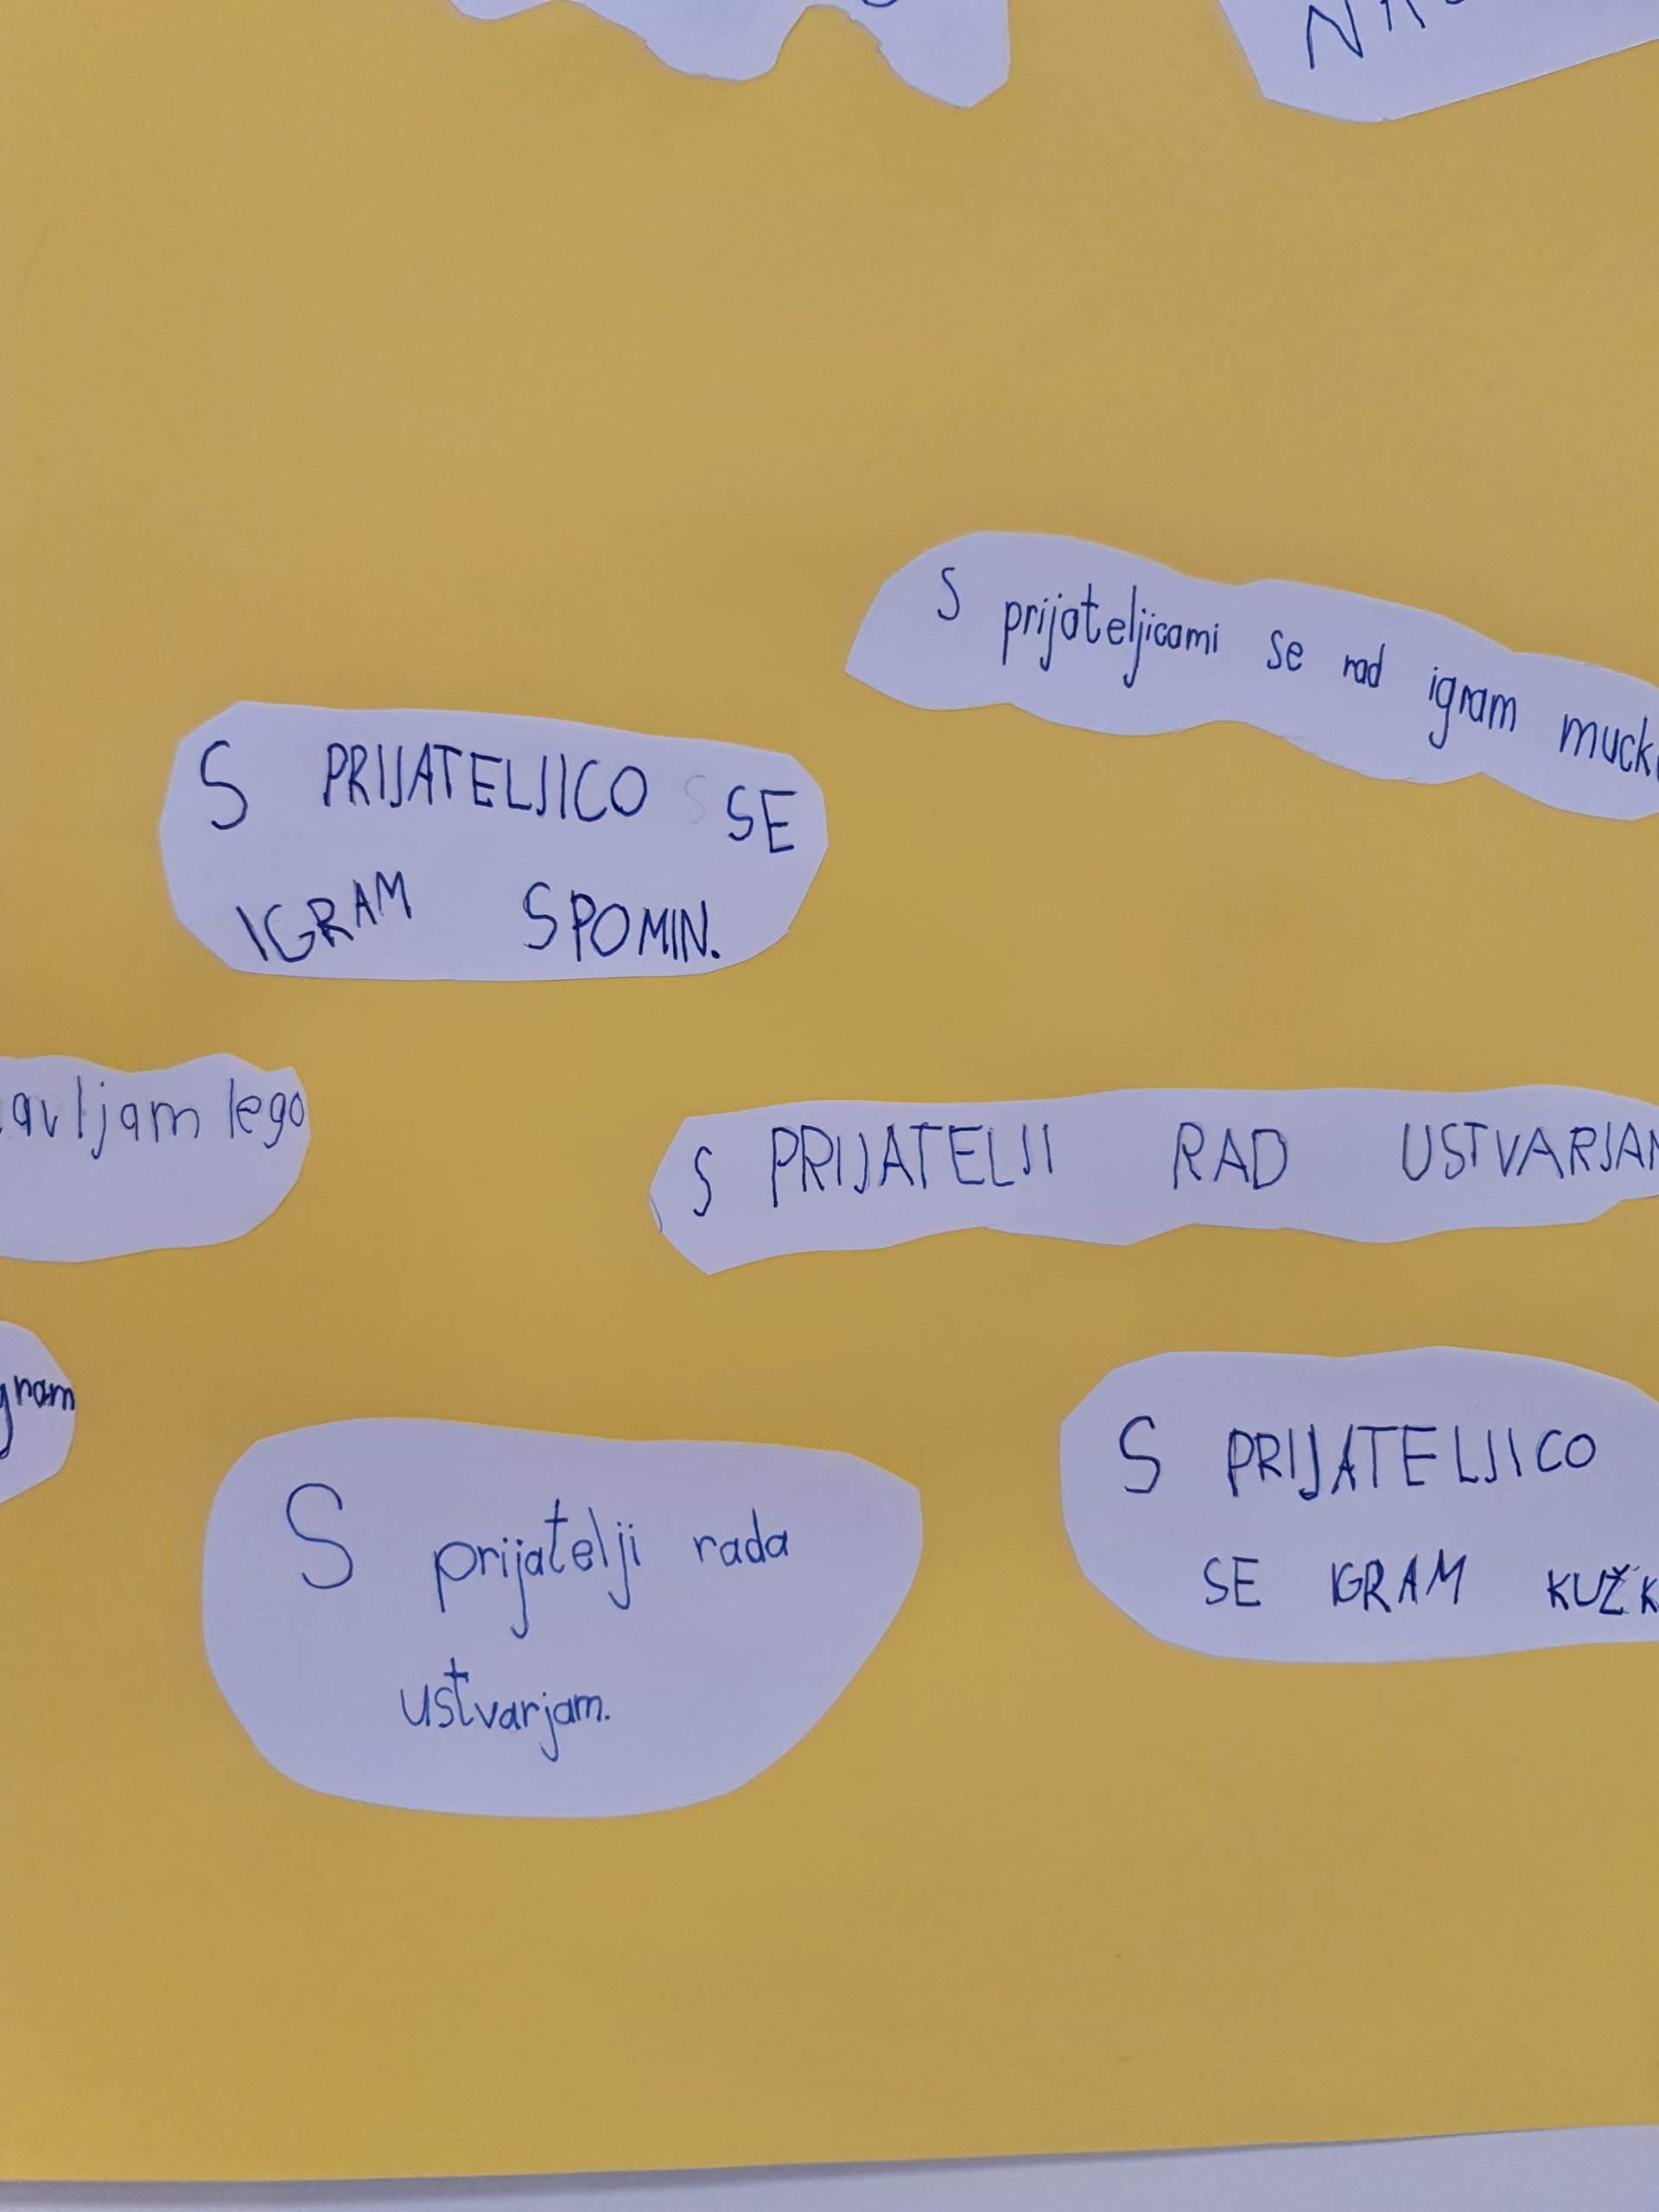 S prijateljicami se rad igram
S PRIJATELJICO SE
IGRAM SPOMIN.
lego
S PRIJATELJI RAD
S prijatelji rada
ustvarjam.
S PRIJATELJICO
SE IGRAM